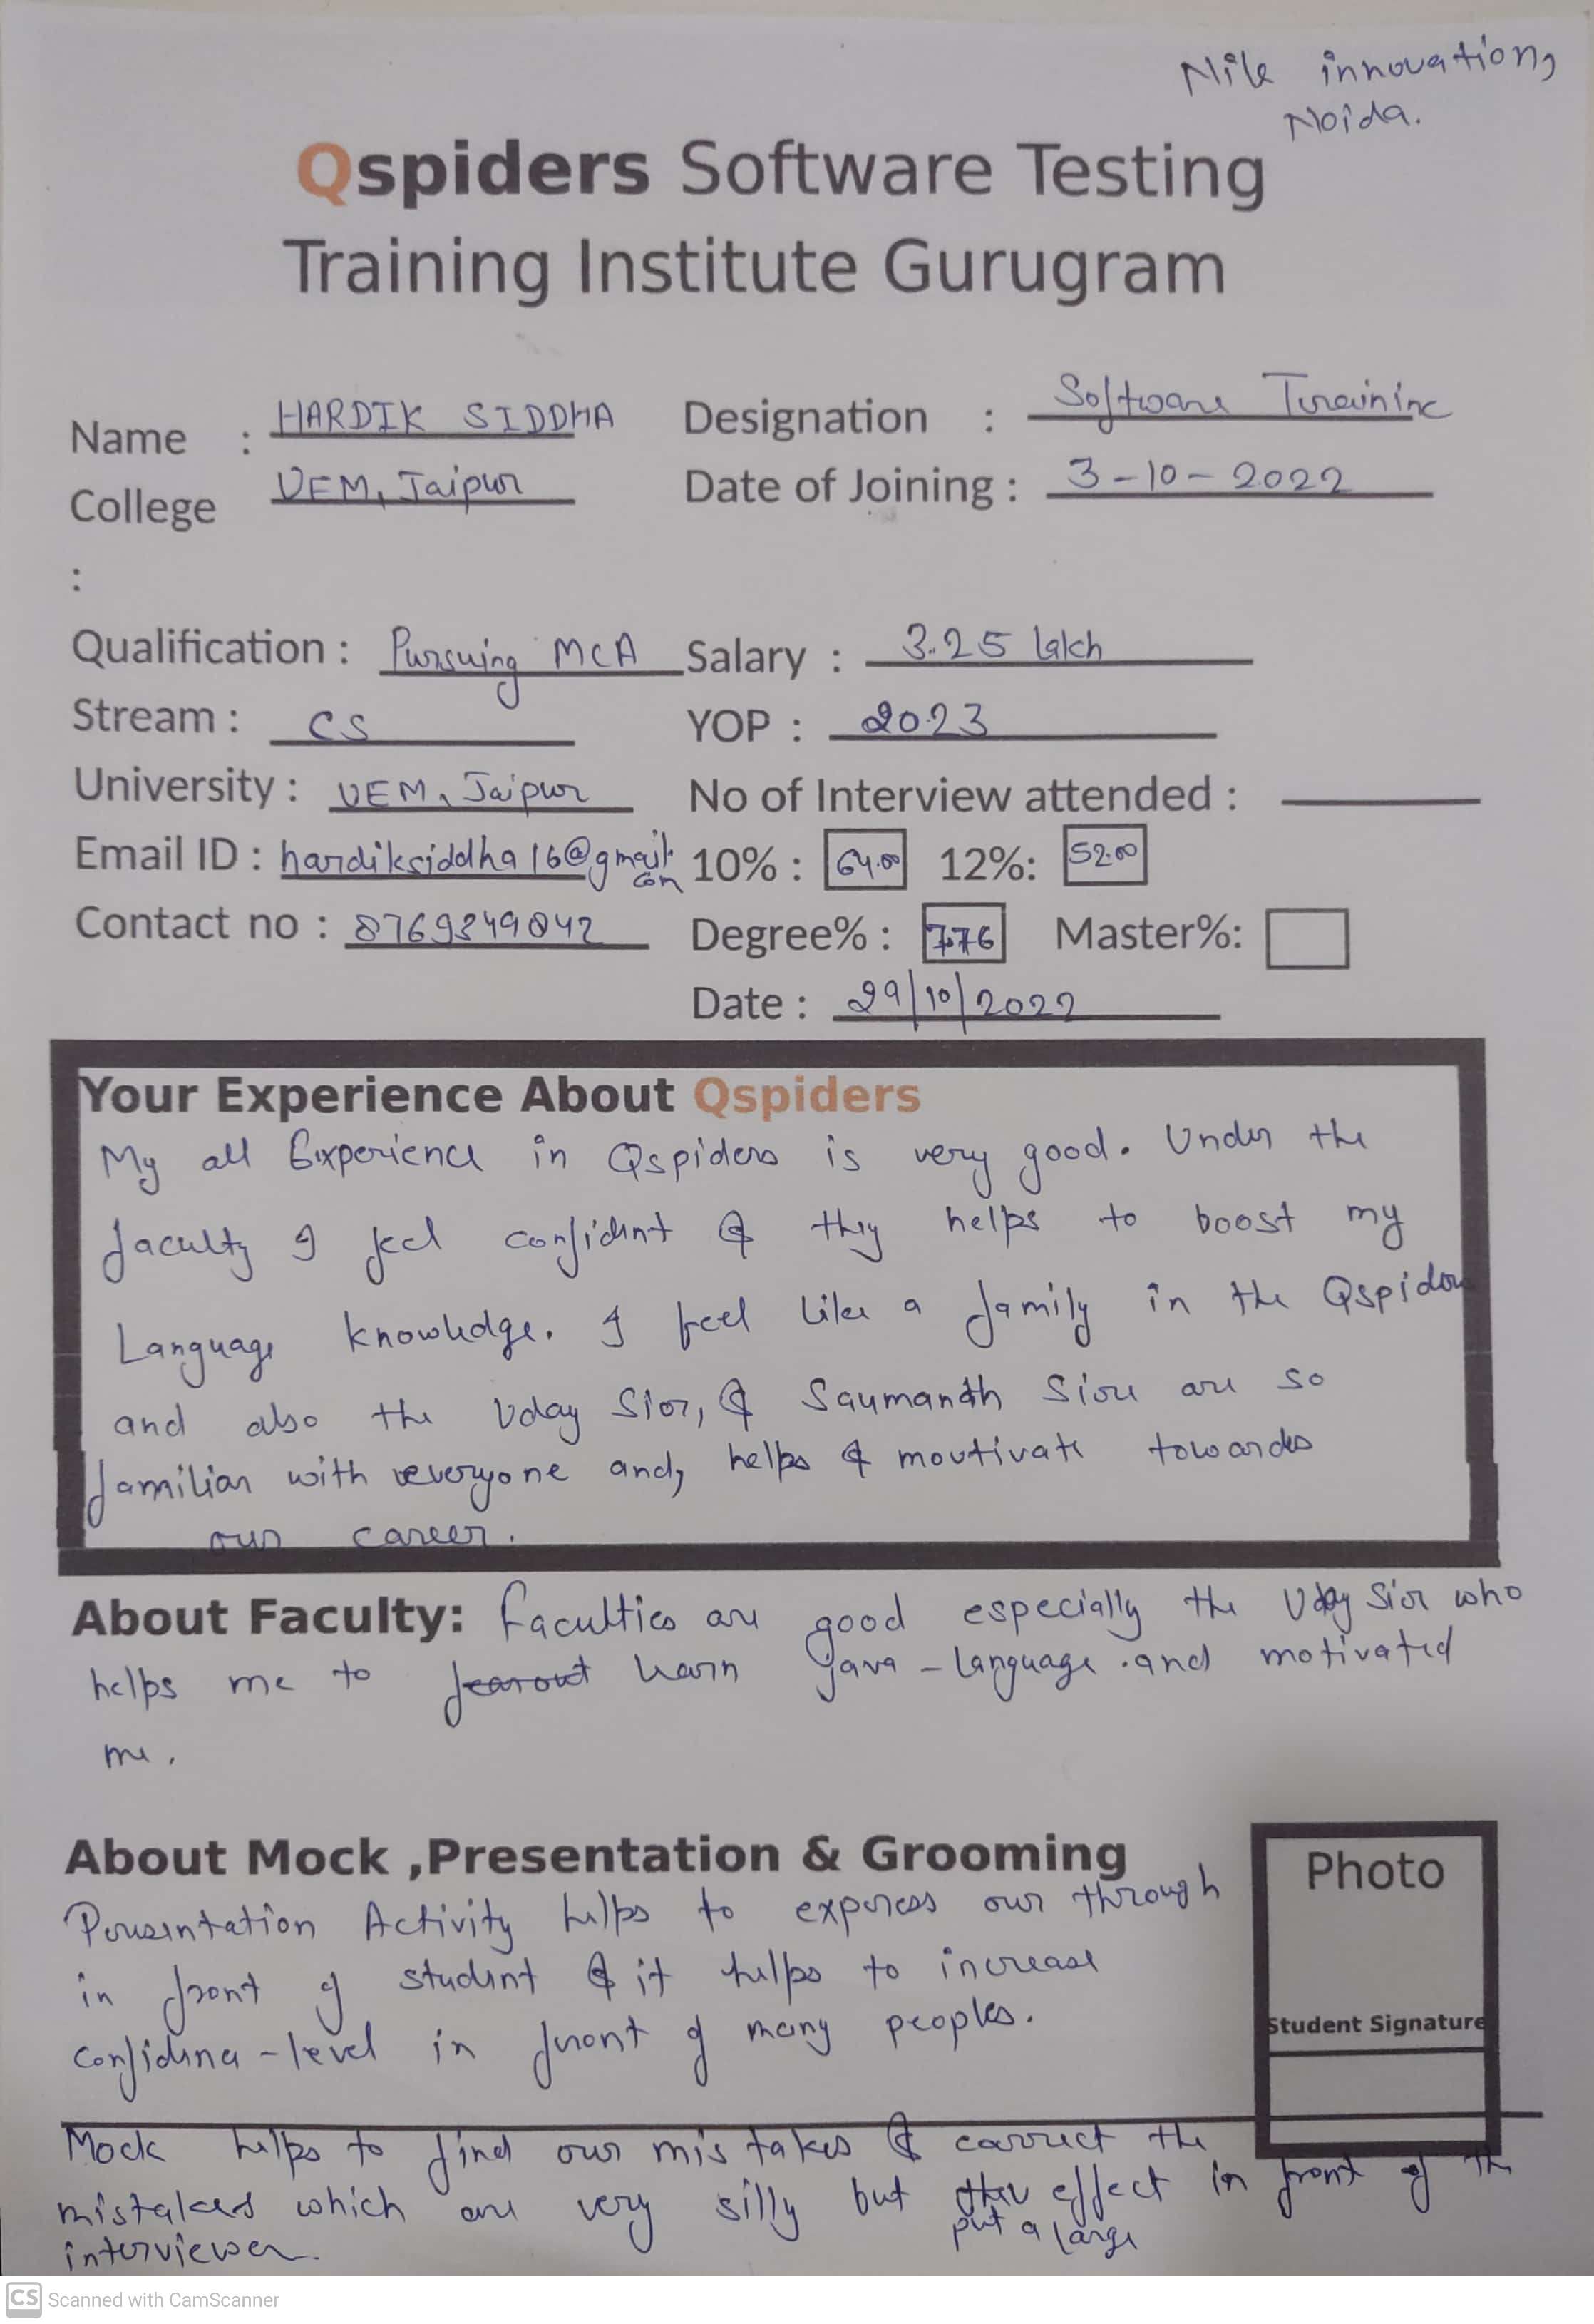 Nile innovation,
Noida.
Qspiders Software Testing
Training Institute Gurugram
Name : HARDIK SIDDHA Designation : Software
College UEM, Jaipur Date of Joining : 3-10-2022
:
Qualification : Pursuing MCA Salary : 3.25 lakh
Stream : CS YOP : 2023
University : UEM, Jaipur No of Interview attended :
Email ID : hardiksiddha16@gmail.com 10% : 64.00 12%: 52.00
Contact no : 8769349042 Degree% : 7.76 Master%:
Date : 29/10/2022
Your Experience About Qspiders
My all Experience in Qspiders is very good. Under the
faculty I feel confident & they helps to boost my
Language knowledge. I feel like a family in the Qspider
and also the Uday Sir, & Saumanth Sir are so
familiar with everyone and, helps & moutivate towards
our career.
About Faculty: faculties are good especially the Uday Sir who
helps me to learn java-language and motivated
me.
About Mock ,Presentation & Grooming
Presentation Activity helps to express our through
in front of student & it helps to increase
confidence-level in front of many peoples.
Photo
Student Signature
Mock helps to find our mistakes & correct the
mistakes which are very silly but put a large effect in front of the
interviewer.
CS Scanned with CamScanner